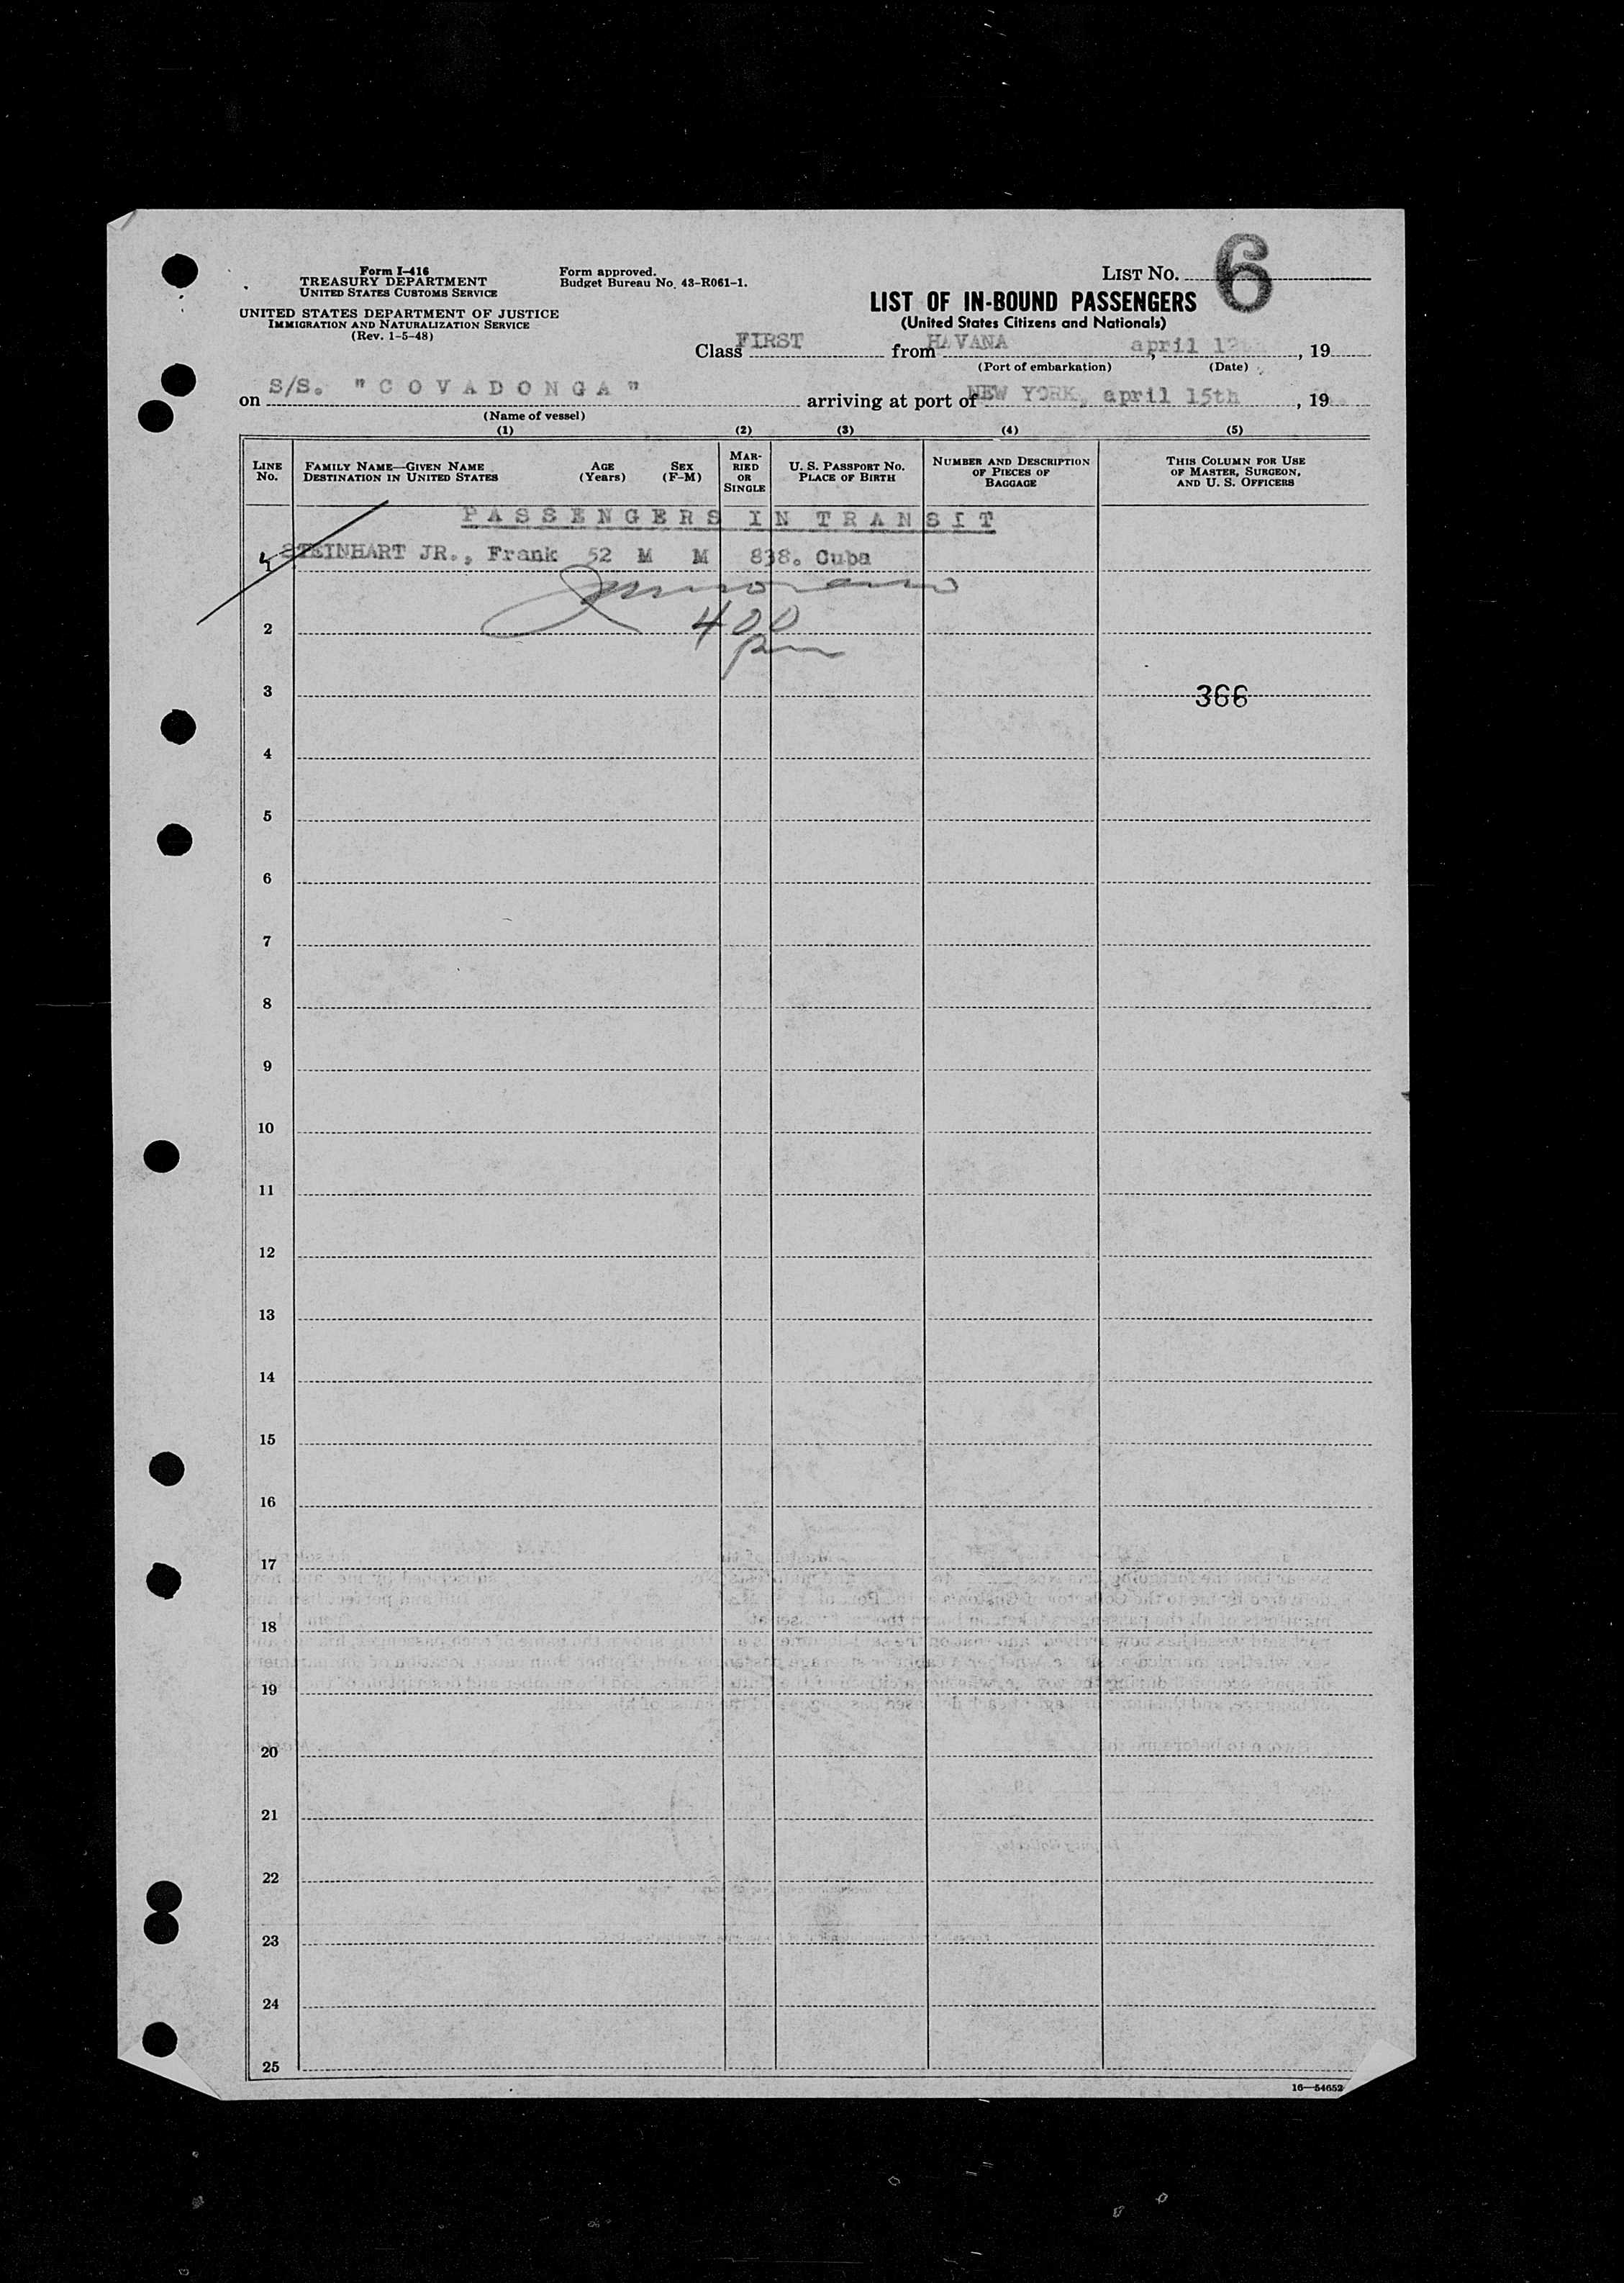 Form I-416
TREASURY DEPARTMENT
UNITED STATES CUSTOMS SERVICE
UNITED STATES DEPARTMENT OF JUSTICE
IMMIGRATION AND NATURALIZATION SERVICE
(Rev. 1-5-48)
Form approved.
Budget Bureau No. 43-R061-1.
LIST NO. 6
LIST OF IN-BOUND PASSENGERS
(United States Citizens and Nationals)
Class FIRST from HAVANA , april 12th , 19
(Port of embarkation) (Date)
on S/S. "COVADONGA" arriving at port of NEW YORK, april 15th , 19
(Name of vessel)
(1) (2) (3) (4) (5)
LINE NO. FAMILY NAME—GIVEN NAME DESTINATION IN UNITED STATES AGE (Years) SEX (F-M) MARRIED OR SINGLE U. S. PASSPORT NO. PLACE OF BIRTH NUMBER AND DESCRIPTION OF PIECES OF BAGGAGE THIS COLUMN FOR USE OF MASTER, SURGEON, AND U. S. OFFICERS
PASSENGERS IN TRANSIT
STEINHART JR., Frank 52 M M 838. Cuba
400
pm
2
3 366
4
5
6
7
8
9
10
11
12
13
14
15
16
17
18
19
20
21
22
23
24
25
16—54652